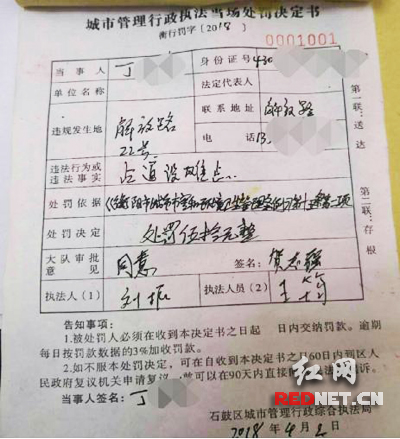 城市管理行政执法当场处罚决定书
衡行罚字〔2018〕
0001001
当事人 丁 身份证号 430
单位名称 法定代表人
违规发生地 解放路22号 联系地址 解放路
电话 13
违法行为或违法事实 占道设摊点
处罚依据 《衡阳市城市市容和环境卫生管理条例》
处罚决定 处罚伍拾元整
大队审批意见 同意 签名：
执法人（1） 刘振 执法人员（2） 王
第一联：送达
第二联：存根
告知事项：
1.被处罚人必须在收到本决定书之日起 日内交纳罚款。逾期
每日按罚款数据的3%加收罚款。
2.如不服本处罚决定，可在自收到本决定书之日60日内到区人
民政府复议机关申请复议，
可以在90天内直接
诉。
当事人签名：丁
石鼓区城市管理行政综合执法局
2018年4月2日
红网
REDNET.CN